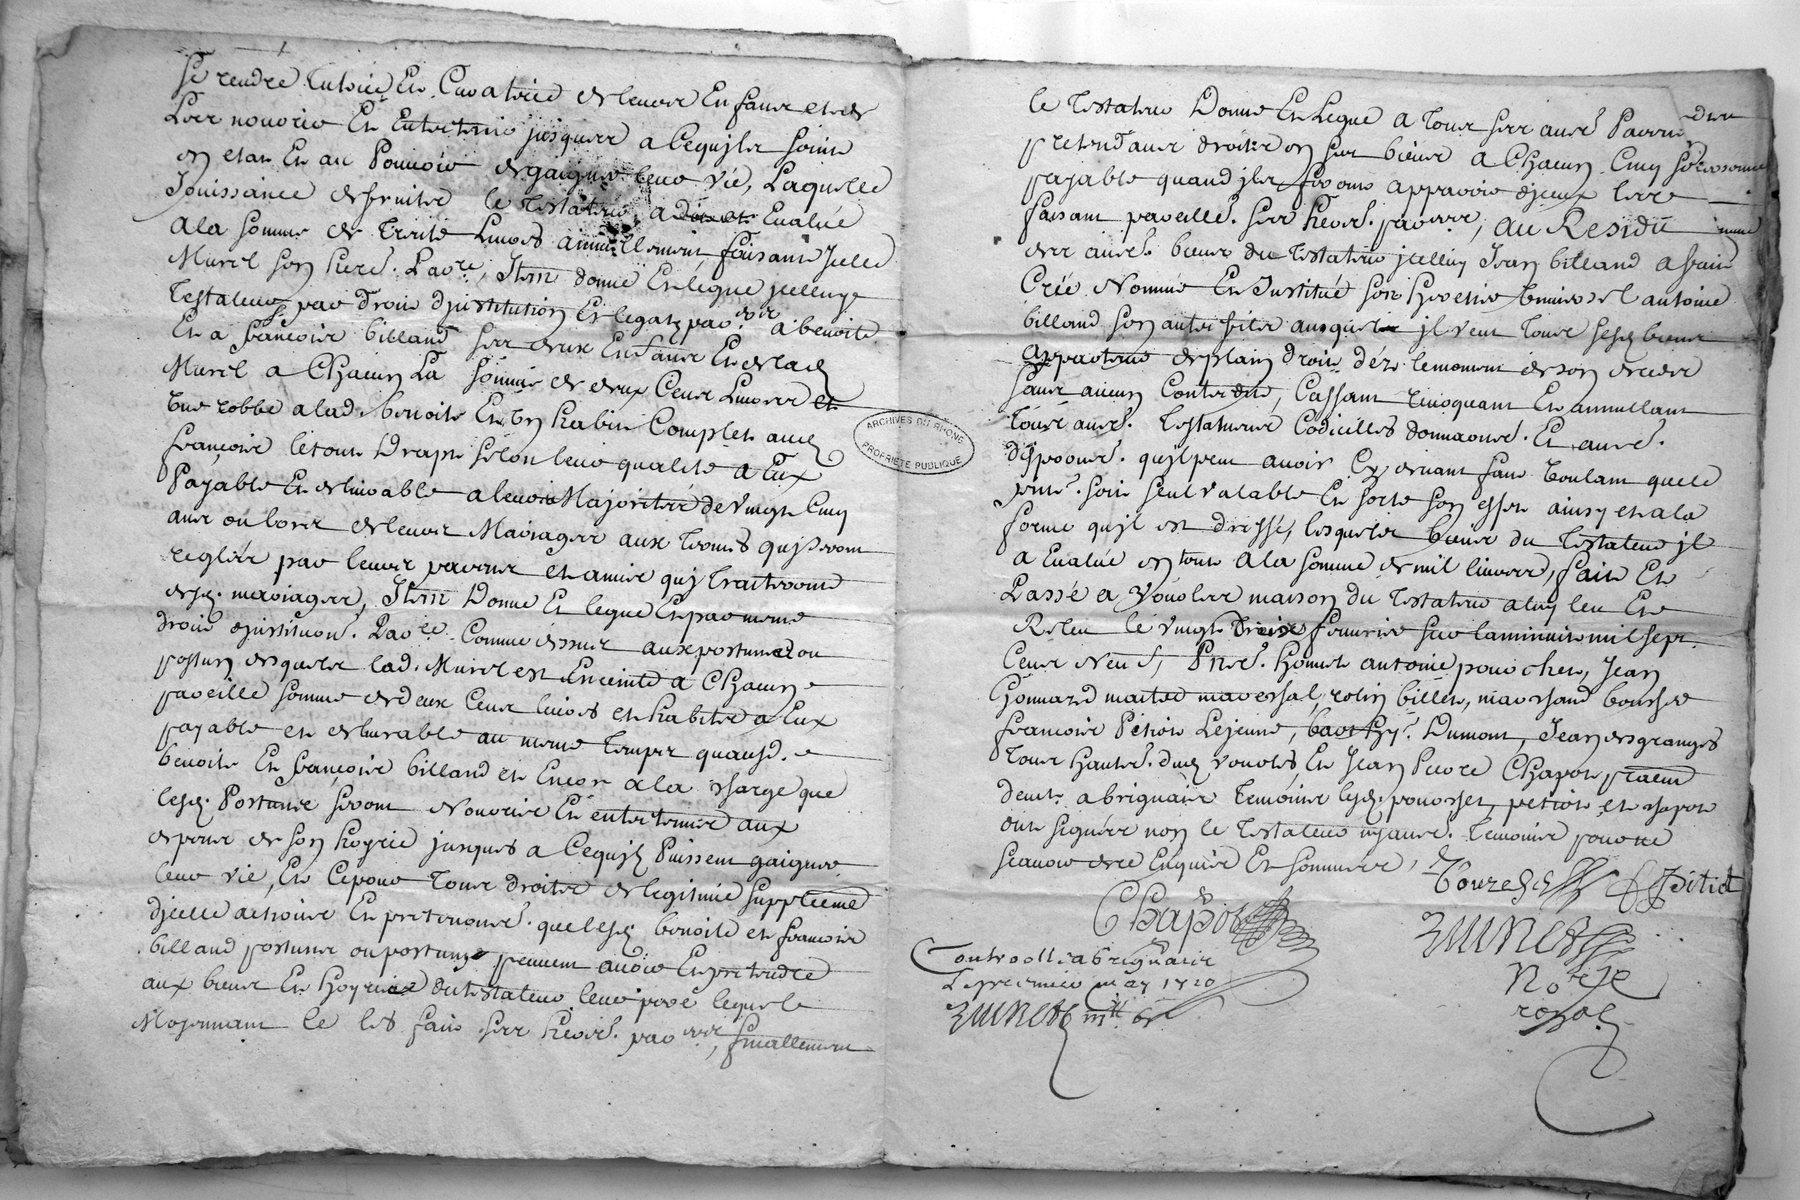 se rendre tutrice et curatrice de leurs enfans et de
Les nourir et entretenir jusques a ce qu'jls soint
en etat et au Pouvoir de gaigner leur vie, Laquelle
Jouissance de fruits le Testateur a evalué
a la somme de Trente Livres annuellement faisant Jcelle
Murel son here. par.re, Item donne et legue jcelluy
Testateur par droit d'jnstitution et legats par.er a benoite
Et a francoise billand ses deux Enfans Et de lad.
Murel a Chacun La somme de deux Cens Livres et
une robbe a lad. benoite Et un habit Complet aud.
francois le tout Drapt selon leur qualité a Eux
Payable Et delivrable a leur Majorité de Vingt Cinq
ans ou lors de leurs Mariages aux termes qu'j seront
reglés par leurs parens et amis quj Traitteront
desd. mariages, Item Donne Et legue Et par meme
droit d'jnstitution. Par.re Comme dessus aux postume ou
postum desquels lad. Murel est Enceinte a Chacun
pareille somme de deux Cens livres et habits a Eux
payable et delivrable au meme temps quausd.
benoite Et francois billand et Encor a la charge que
lesd. Postume seront Nouris Et entretenus aux
depens de son hoyrie jusques a Ce qu'jls Puissent gaigner
leur vie, Et Ce pour tous droits de legitime supplement
d'jcelle actions Et pretentions. que lesd. benoite et francois
billand postume ou postumes peuvent avoir Et pretendre
aux biens Et hoyrie du testateur leur pere lequel
Moyennant Ce les fait ses heres. par.ers, finallement
le Testateur Donne Et Legue a Tous ses autres Parens
pretendans droits en ses biens a Chacun Cinq sols
payable quand jls feront apparoir d'jceux les
faisant pareille. ses heres. par.ers, au Residu
des autres. biens du Testateur jcelluy Jean billand a fait
Crée Nommé Et Jnstitué son heretier universel antoine
billand son autre fils auquel jl veut tous sesd. biens
appartenir de plain droit déz le moment de son deces
sans aucun Contredit, Cassant revoquant Et annullant
tous autres. Testamens Codicilles donnaons. Et autres.
disposons. qu'jl peut avoir Cy devant fait voulant que le
pnt. soit seul valable Et sorte son effet ainsy et a la
forme qu'jl est dressé, lesquels biens du Testateur jl
a Evalué en tout a la somme de mil livres, fait Et
Passé a Vourles maison du Testateur a luy leu Et
Releu le vingt Troise fevrier sur la minuite mil sept
Cens Neuf, Pnts. honnete antoine ponochet, Jean
Gonnard maitre marechal, rolin billet, marchand boucher
francois Petiot Lejeune, Dumont, Jean desgranges
Tous hants. dud. vourles, Et Jean Piere Chapot
demt. a brignais temoins lesd. ponochet, petiot et chapot
ont signés non le Testateur nj autres. temoins pour ne
scavoir de ce Enquis Et Sommés,
Chapot
Petiot
Controollé a brignais
Le premier may 1710
No.re
royal